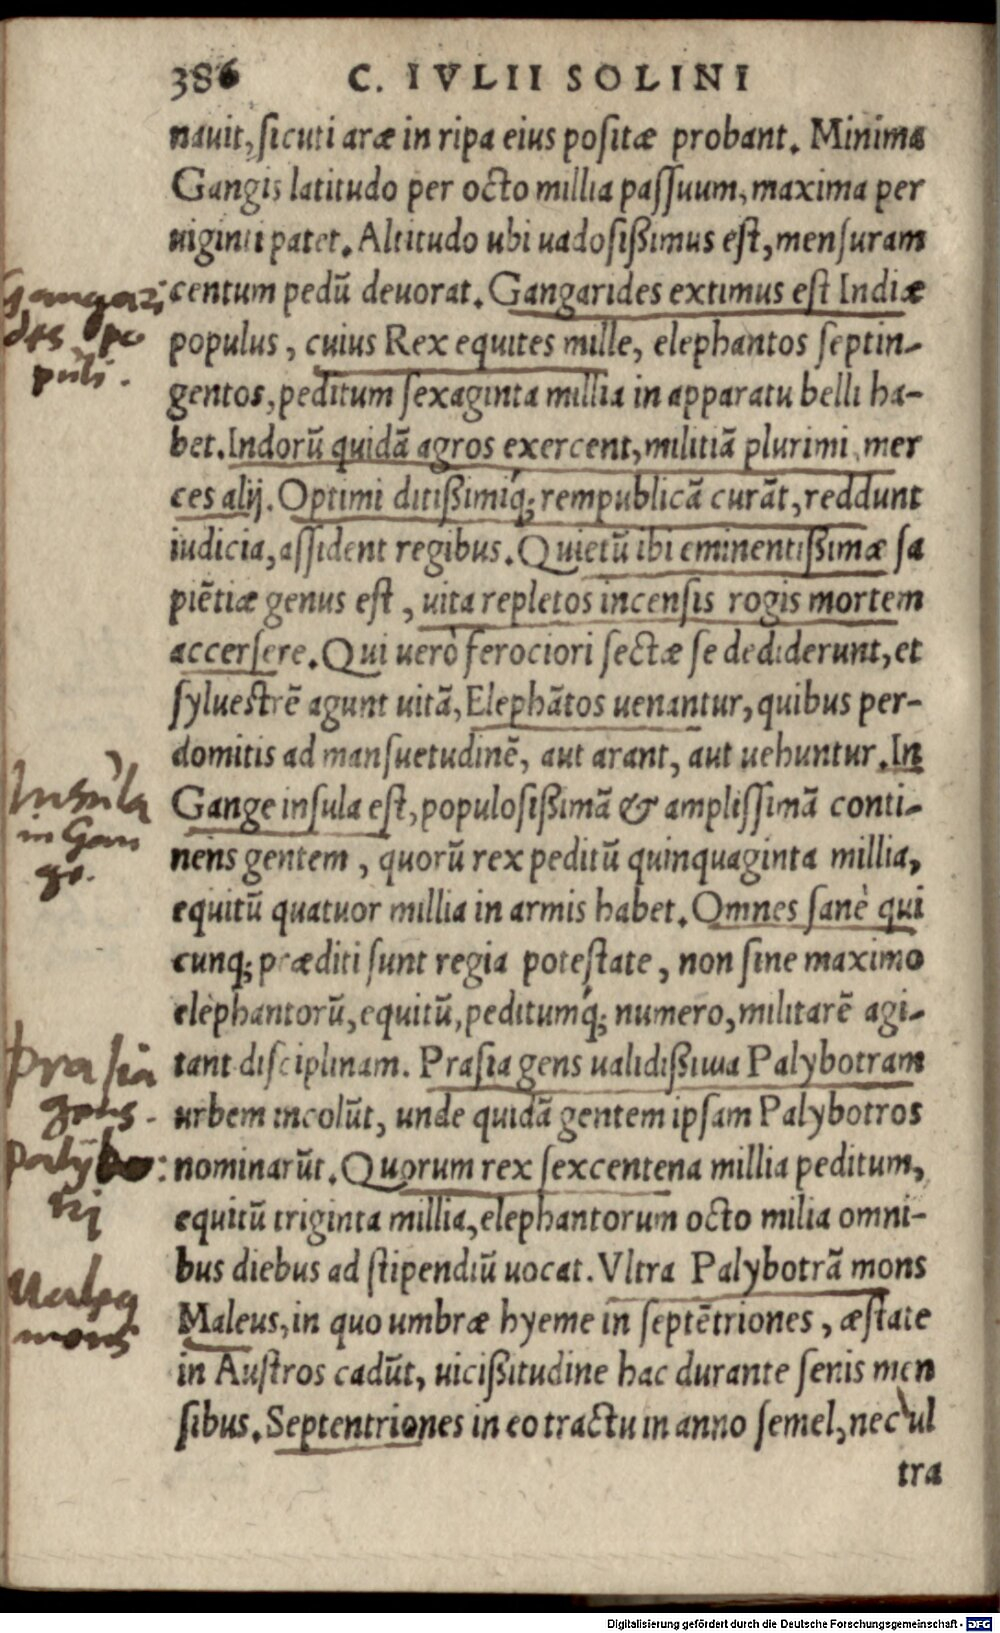 386 C. IVLII SOLINI
nauit, ſicuti aræ in ripa eius poſitæ probant. Minima
Gangis latitudo per octo millia paſſuum, maxima per
uiginti patet. Altitudo ubi uadoſiſſimus eſt, menſuram
centum pedū deuorat. Gangarides extimus eſt Indiæ
populus, cuius Rex equites mille, elephantos ſeptin-
gentos, peditum ſexaginta millia in apparatu belli ha-
bet. Indorū quidā agros exercent, militiā plurimi, mer
ces alij. Optimi ditiſſimiq́; rempublicā curāt, reddunt
iudicia, aſſident regibus. Quietū ibi eminentiſſimæ ſa
piētiæ genus eſt, uita repletos incenſis rogis mortem
accerſere. Qui uerò ferociori ſectæ ſe dediderunt, et
ſylueſtrē agunt uitā, Elephātos uenantur, quibus per-
domitis ad manſuetudinē, aut arant, aut uehuntur. In
Gange inſula eſt, populoſiſſimā & ampliſſimā conti-
nens gentem, quorū rex peditū quinquaginta millia,
equitū quatuor millia in armis habet. Omnes ſanè qui
cunq; præditi ſunt regia poteſtate, non ſine maximo
elephantorū, equitū, peditumq́; numero, militarē agi-
tant diſciplinam. Praſia gens ualidiſſima Palybotram
urbem incolūt, unde quidā gentem ipſam Palybotros
nominarūt. Quorum rex ſexcentena millia peditum,
equitū triginta millia, elephantorum octo milia omni-
bus diebus ad ſtipendiū uocat. Vltra Palybotrā mons
Maleus, in quo umbræ hyeme in ſeptētriones, æſtate
in Auſtros cadūt, uiciſſitudine hac durante ſenis men
ſibus. Septentriones in eo tractu in anno ſemel, nec ul
tra
Gangari
des po
puli.
Insula
in Gan
ge.
Prasia
gens.
Palybo:
tri
Maleus
mons
Digitalisierung gefördert durch die Deutsche Forschungsgemeinschaft - DFG